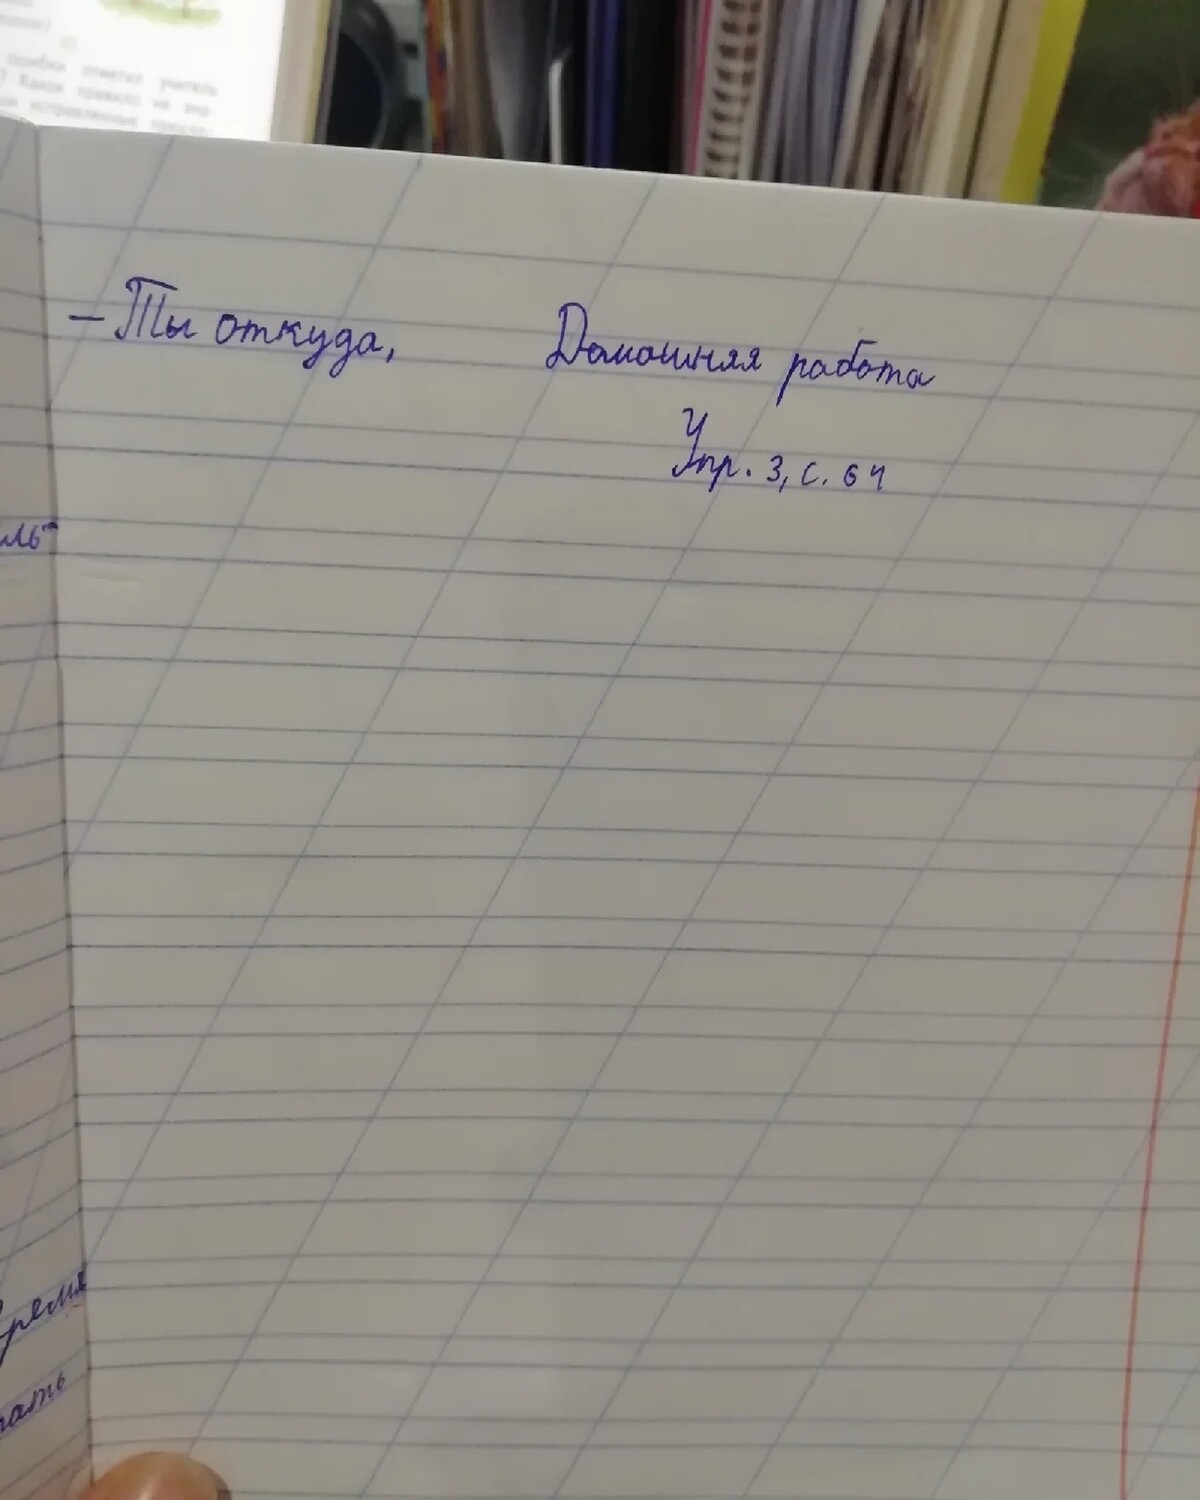 ошибки отметил учитель
Какое правило не вы-
– Ты откуда, Домашняя работа
Упр. 3, с. 64
ль"
время